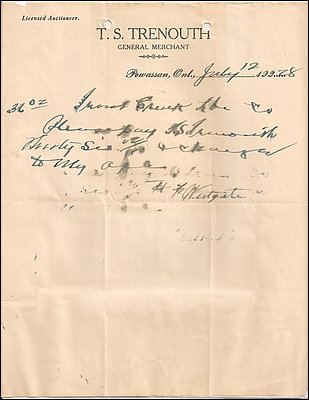 Licensed Auctioneer.
T. S. TRENOUTH
GENERAL MERCHANT
Powassan, Ont., July 12 1928
36 02 Trout Creek Lbr Co
Please pay TS Trenouth
Thirty Six 02 & charge
to My
H F Westgate